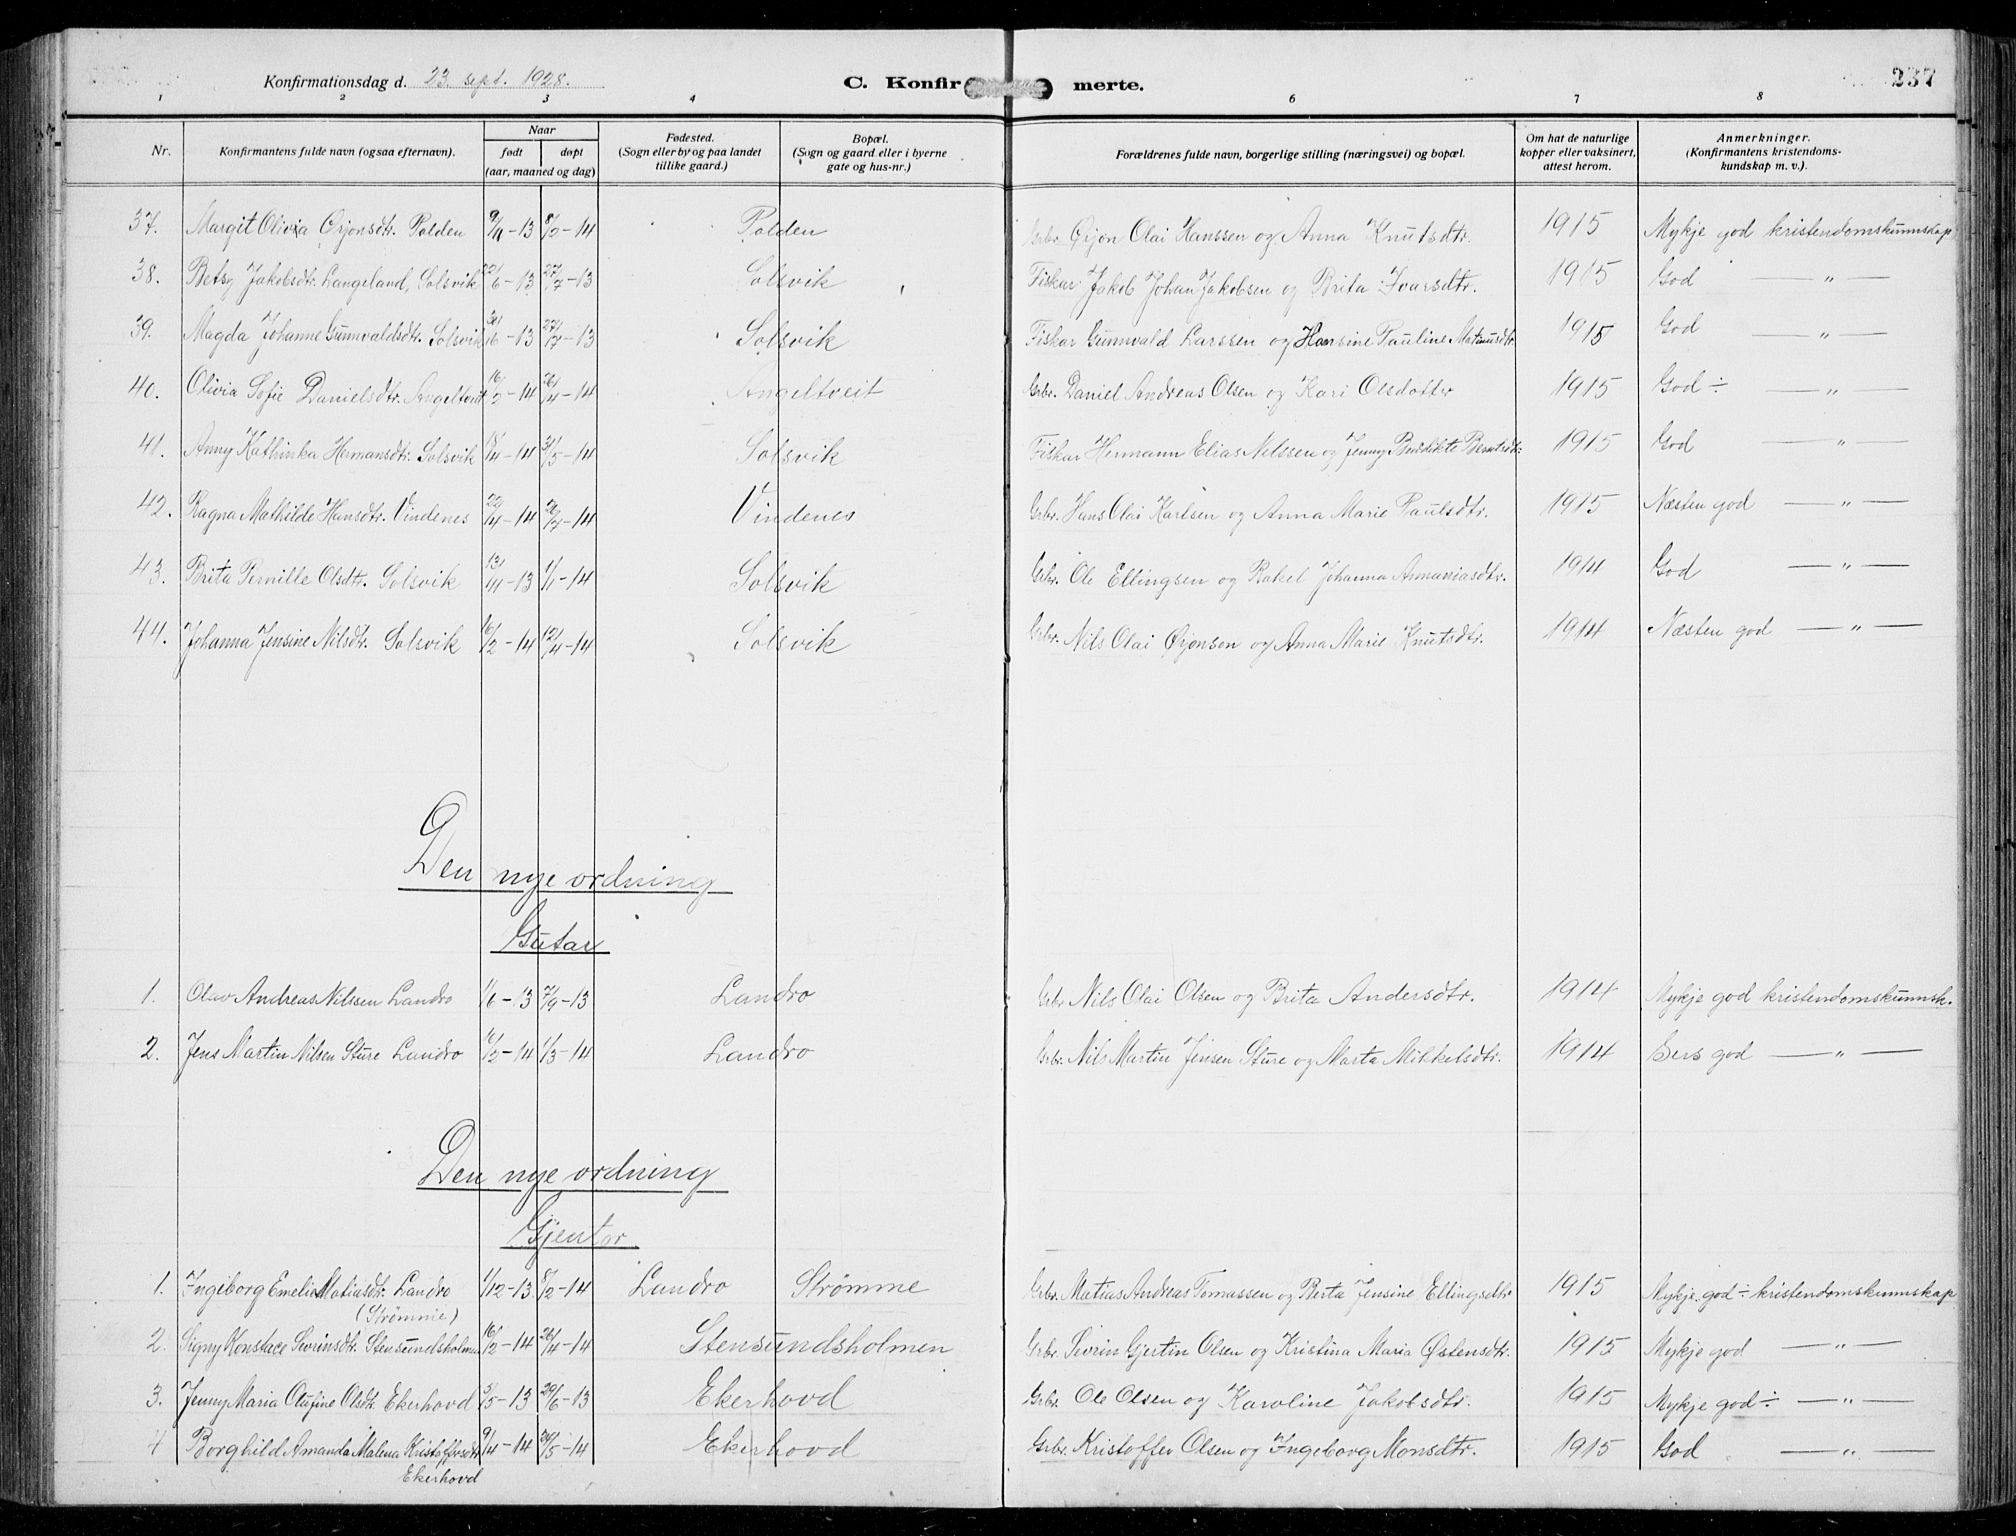 Konfirmationsdag d. 23 sept. 1928.
C. Konfirmerte.
237
1 2 3 4 6 7 8
Nr.
Konfirmantens fulde navn (ogsaa efternavn).
Naar
født
døpt
(aar, maaned og dag)
Fødested.
(Sogn eller by og paa landet
tillike gaard.)
Bopæl.
(Sogn og gaard eller i byerne
gate og hus-nr.)
Forældrenes fulde navn, borgerlige stilling (næringsvei) og bopæl.
Om hat de naturlige
kopper eller vaksinert,
attest herom.
Anmerkninger.
(Konfirmantens kristendoms-
kundskap m. v.).
37. Margit Olivia Ørjonsdtr. Polden 9/11-13 8/2-14 Polden Grbr. Ørjon Olai Hanssen og Anna Knutsdtr. 1915 Mykje god kristendomskunnskap
38. Betsy Jakobsdtr. Langeland, Solsvik 22/6-13 27/7-13 Solsvik Fiskar Jakob Johan Jakobsen og Brita Ivarsdtr. 1915 God — " —
39. Magda Johanne Gunnvaldsdtr. Solsvik 30/6-13 27/7-13 Solsvik Fiskar Gunnvald Larssen og Hansine Pauline Matsusdtr 1915 God — " —
40. Olivia Sofie Danielsdtr. Angeltveit 16/2-14 26/4-14 Angeltveit Grbr. Daniel Andreas Olsen og Kari Olsdotter 1915 God ÷ — " —
41. Anny Kathinka Hermansdtr. Solsvik 18/4-14 31/5-14 Solsvik Fiskar Hermann Elias Nilssen og Jenny Benedikte Berntsdtr. 1915 God — " —
42. Ragna Mathilde Hansdtr. Vindenes 22/4-14 26/7-14 Vindenes Grbr. Hans Olai Karlsen og Anna Marie Paulsdtr. 1915 Næsten god — " —
43. Brita Pernille Olsdtr. Solsvik 13/11-13 1/1-14 Solsvik Grbr. Ole Ellingsen og Rakel Johanna Annaniasdtr. 1914 God — " —
44. Johanna Jensine Nilsdtr. Solsvik 16/2-14 12/4-14 Solsvik Grbr. Nils Olai Ørjonsen og Anna Marie Knutsdtr. 1914 Næsten god — " —
Den nye ordning
Gutar
1. Olav Andreas Nilssen Landro 1/6-13 7/9-13 Landro Grbr Nils Olai Olsen og Brita Andersdtr. 1914 Mykje god kristendomskunnsk.
2. Jens Martin Nilsen Sture Landro 10/2-14 1/3-14 Landro Grbr. Nils Martin Jensen Sture og Marta Mikkelsdtr. 1914 Sers god — " —
Den nye ordning
Gjentor
1. Ingeborg Emelie Matiasdtr. Landro 1/12-13 8/2-14 Landro Strømme Grbr. Matias Andreas Tomassen og Berta Jensine Ellingsdtr 1915 Mykje god ÷ kristendomskunnskap
(Strømme)
2. Signy Konstace Sevrinsdtr. Stensundsholmen 16/2-14 26/4-14 Stensundsholmen Grbr. Sevrin Gjertin Olsen og Kristina Maria Østensdtr. 1915 Mykje god — " —
3. Jenny Maria Olufine Olsdt Ekerhovd 5/5-13 29/6-13 Ekerhovd Grbr. Ole Olsen og Karoline Jakobsdtr. 1915 Mykje god ÷ — " —
4 Borghild Amanda Malena Kristoffersdtr 9/4-14 24/5-14 Ekerhovd Grbr. Kristoffer Olsen og Ingeborg Monsdtr. 1915 God — " —
Ekerhovd